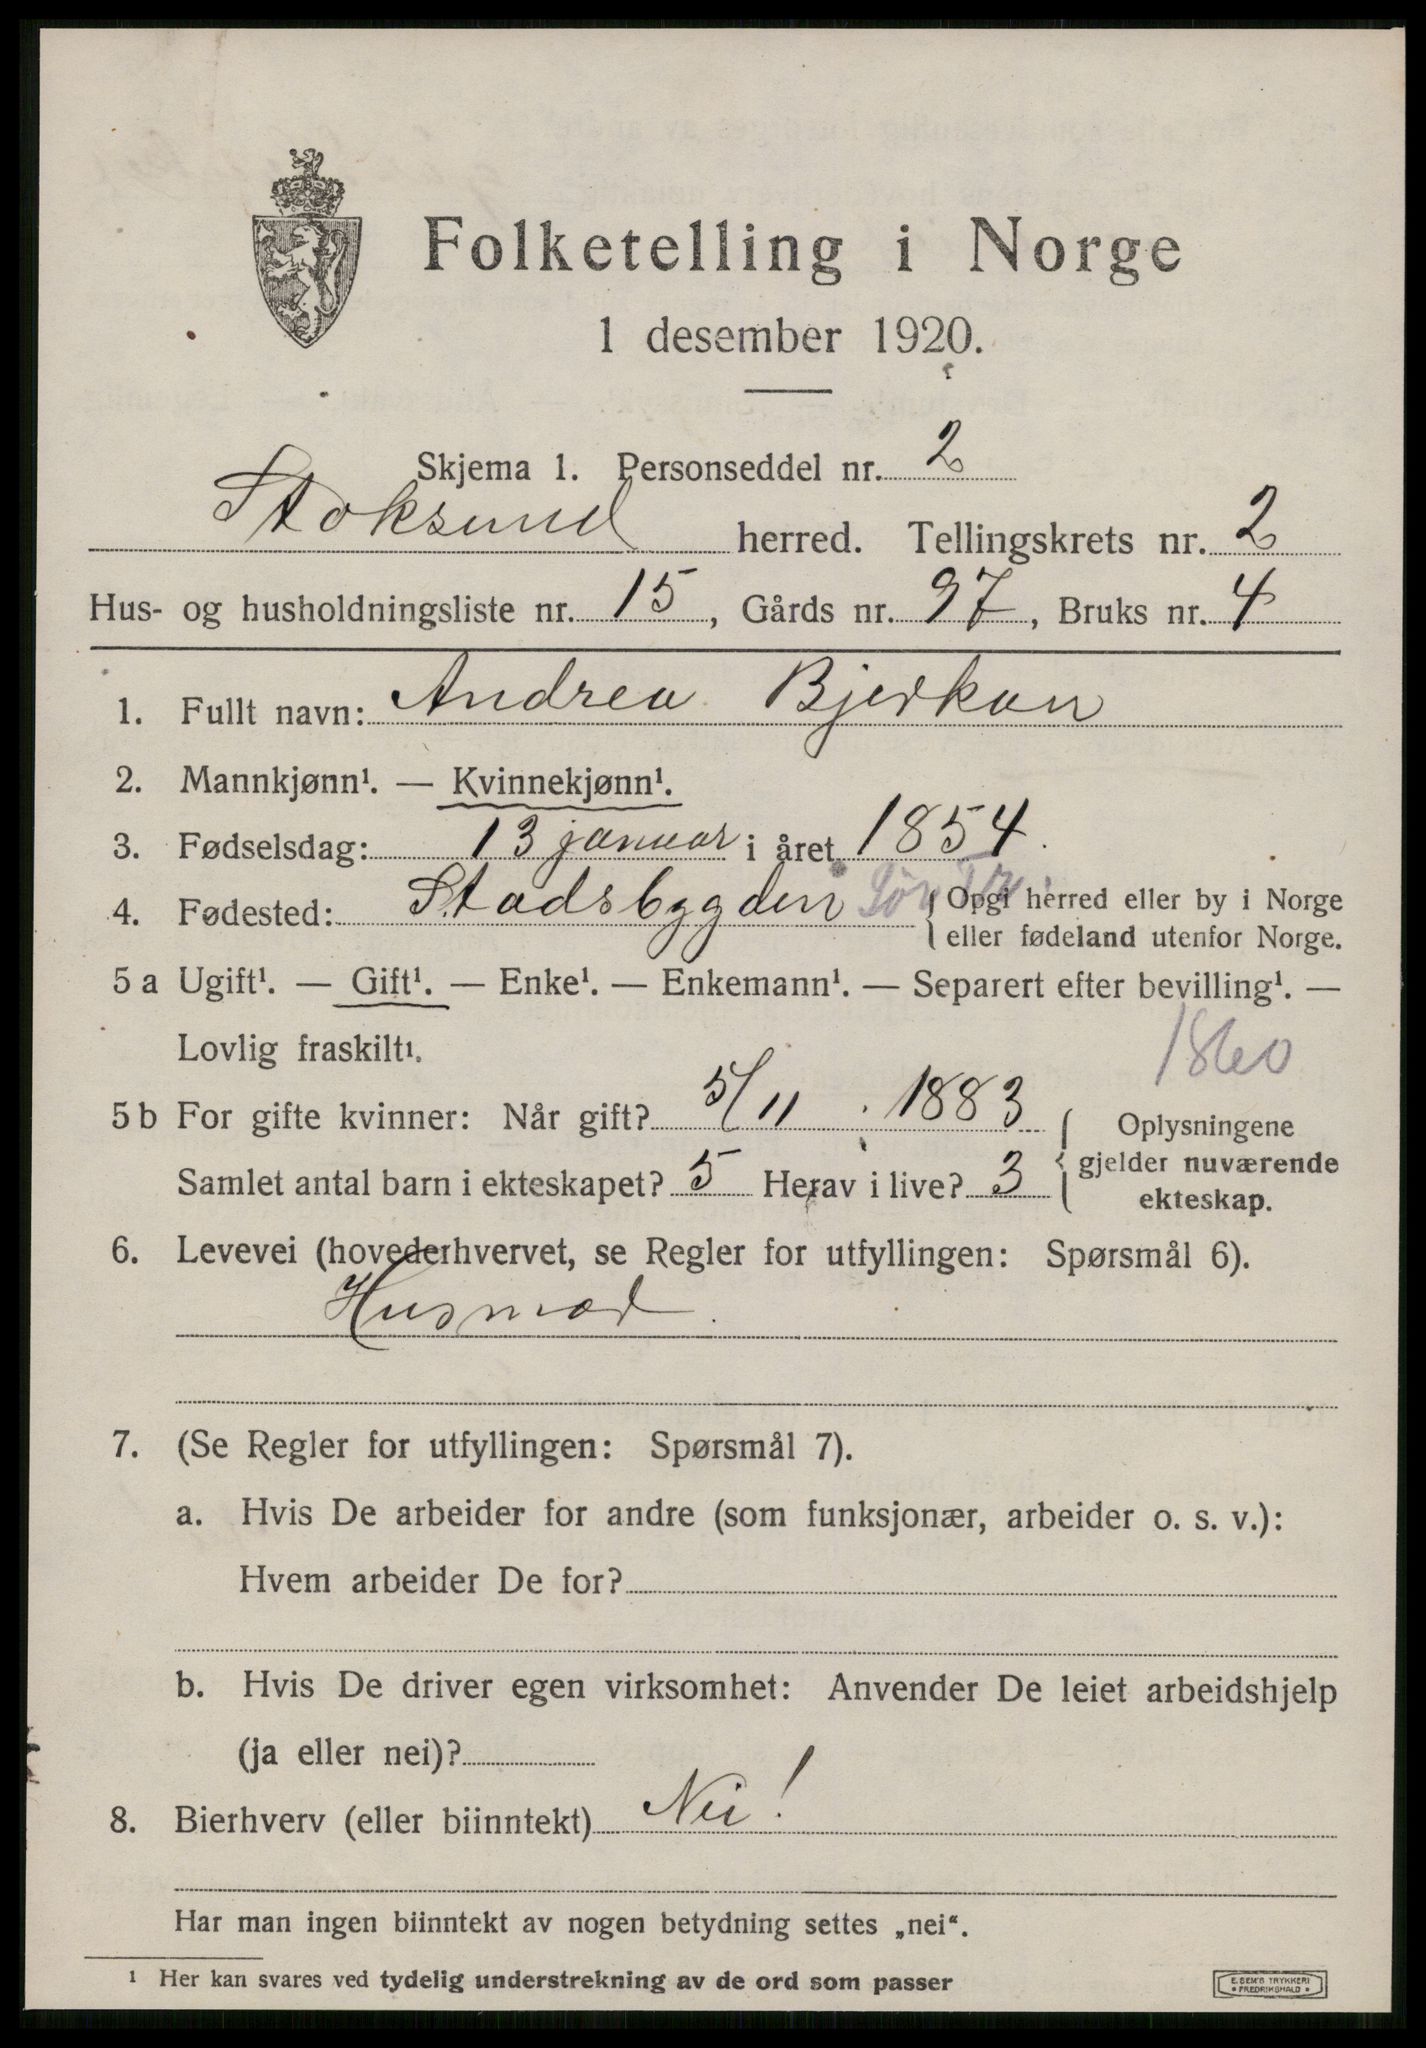 Folketelling i Norge
1 desember 1920.
Skjema 1. Personseddel nr. 2
Stoksund herred. Tellingskrets nr. 2
Hus- og husholdningsliste nr. 15, Gårds nr. 97, Bruks nr. 4
1. Fullt navn: Andrea Bjerkan
2. Mannkjønn¹. — Kvinnekjønn¹.
3. Fødselsdag: 13 januar i året 1854.
4. Fødested: Stadsbygden Sör Tr. { Opgi herred eller by i Norge
eller fødeland utenfor Norge.
5 a Ugift¹. — Gift¹. — Enke¹. — Enkemann¹. — Separert efter bevilling¹. —
Lovlig fraskilt¹.
1860
5 b For gifte kvinner: Når gift? 5/11 . 1883 { Oplysningene
gjelder nuværende
Samlet antal barn i ekteskapet? 5 Herav i live? 3
ekteskap.
6. Levevei (hovederhvervet, se Regler for utfyllingen: Spørsmål 6).
Husmod.
7. (Se Regler for utfyllingen: Spørsmål 7).
a. Hvis De arbeider for andre (som funksjonær, arbeider o. s. v.):
Hvem arbeider De for?
b. Hvis De driver egen virksomhet: Anvender De leiet arbeidshjelp
(ja eller nei)?
8. Bierhverv (eller biinntekt) Nei!
Har man ingen biinntekt av nogen betydning settes „nei“.
¹ Her kan svares ved tydelig understrekning av de ord som passer
E. SEM'S TRYKKERI
• FREDRIKSHALD •